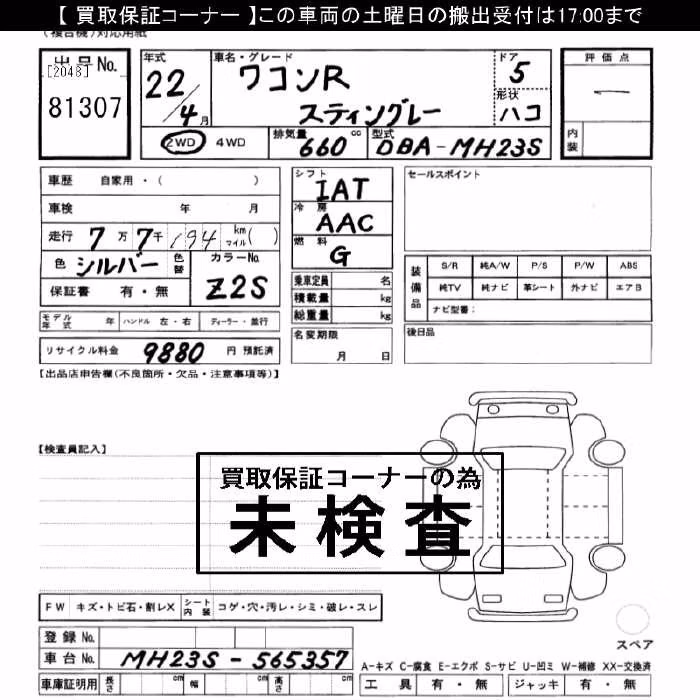 【 買取保証コーナー 】この車両の土曜日の搬出受付は17:00まで
(複合機)対応用紙
出品No.
[2048]
81307
年式
22/4月
車名・グレード
ワゴンR
スティングレー
ドア
5
形状
ハコ
評価点
ー
内装
2WD 4WD
排気量
660 cc
型式
DBA-MH23S
車歴 自家用・( )
車検 年 月
走行 7万7千194 km マイル( )
色 シルバー 色替
カラーNo.
Z2S
保証書 有・無
シフト
IAT
冷房
AAC
燃料
G
乗車定員 名
積載量 kg
総重量 kg
セールスポイント
装備品
S/R 純A/W P/S P/W ABS
純TV 純ナビ 革シート 外ナビ エアB
ナビ型番:
モデル年式 年 ハンドル 左・右 ディーラー・並行
リサイクル料金 9880 円 預託済
名変期限
月 日
後日品
【出品店申告欄(不良箇所・欠品・注意事項等)】
【検査員記入】
買取保証コーナーの為
未検査
FW キズ・トビ石・割レX シート内装 コゲ・穴・汚レ・シミ・破レ・スレ
スペア
登録No.
車台No. MH23S-565357
車庫証明用 長さ cm 幅 cm 高さ cm
A-キズ C-腐食 E-エクボ S-サビ U-凹ミ W-補修 XX-交換済
工具 有・無 ジャッキ 有・無